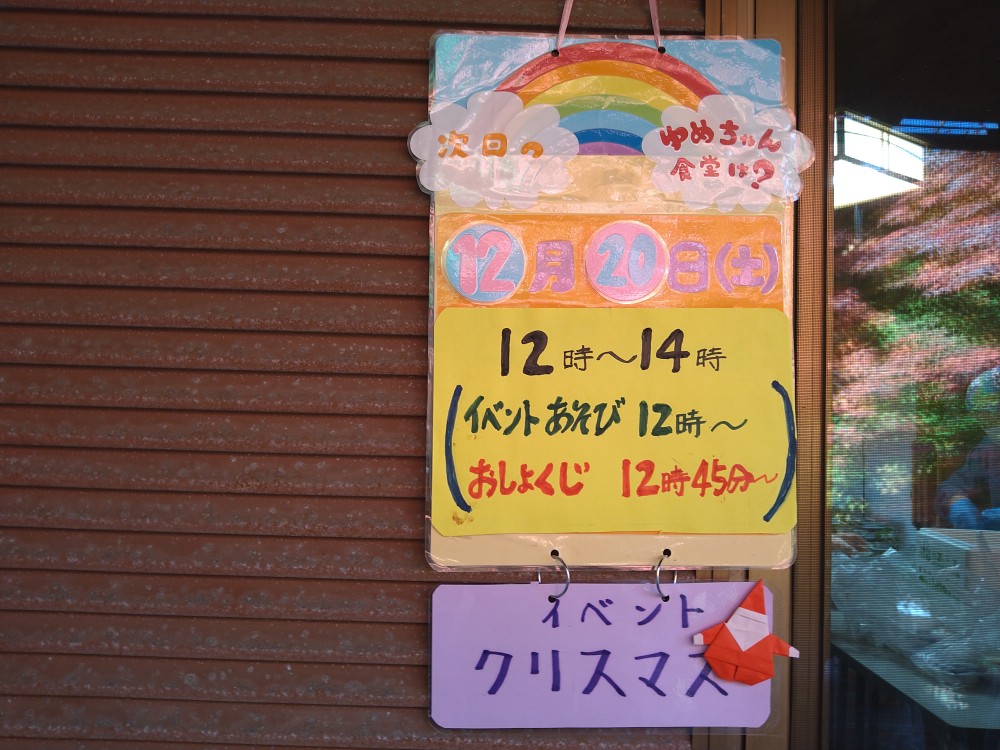 次回の
ゆめちゃん
食堂は?
12月20日(土)
12時～14時
(イベントあそび 12時～
おしょくじ 12時45分～)
イベント
クリスマス